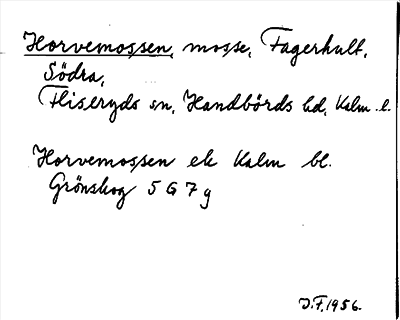 Horvemossen, mosse, Fagerhult,
Södra,
Fliseryds sn, Handbörds hd, Kalm. l.
Horvemossen ek Kalm bl.
Grönskog 5 G 7 g
J.F. 1956.